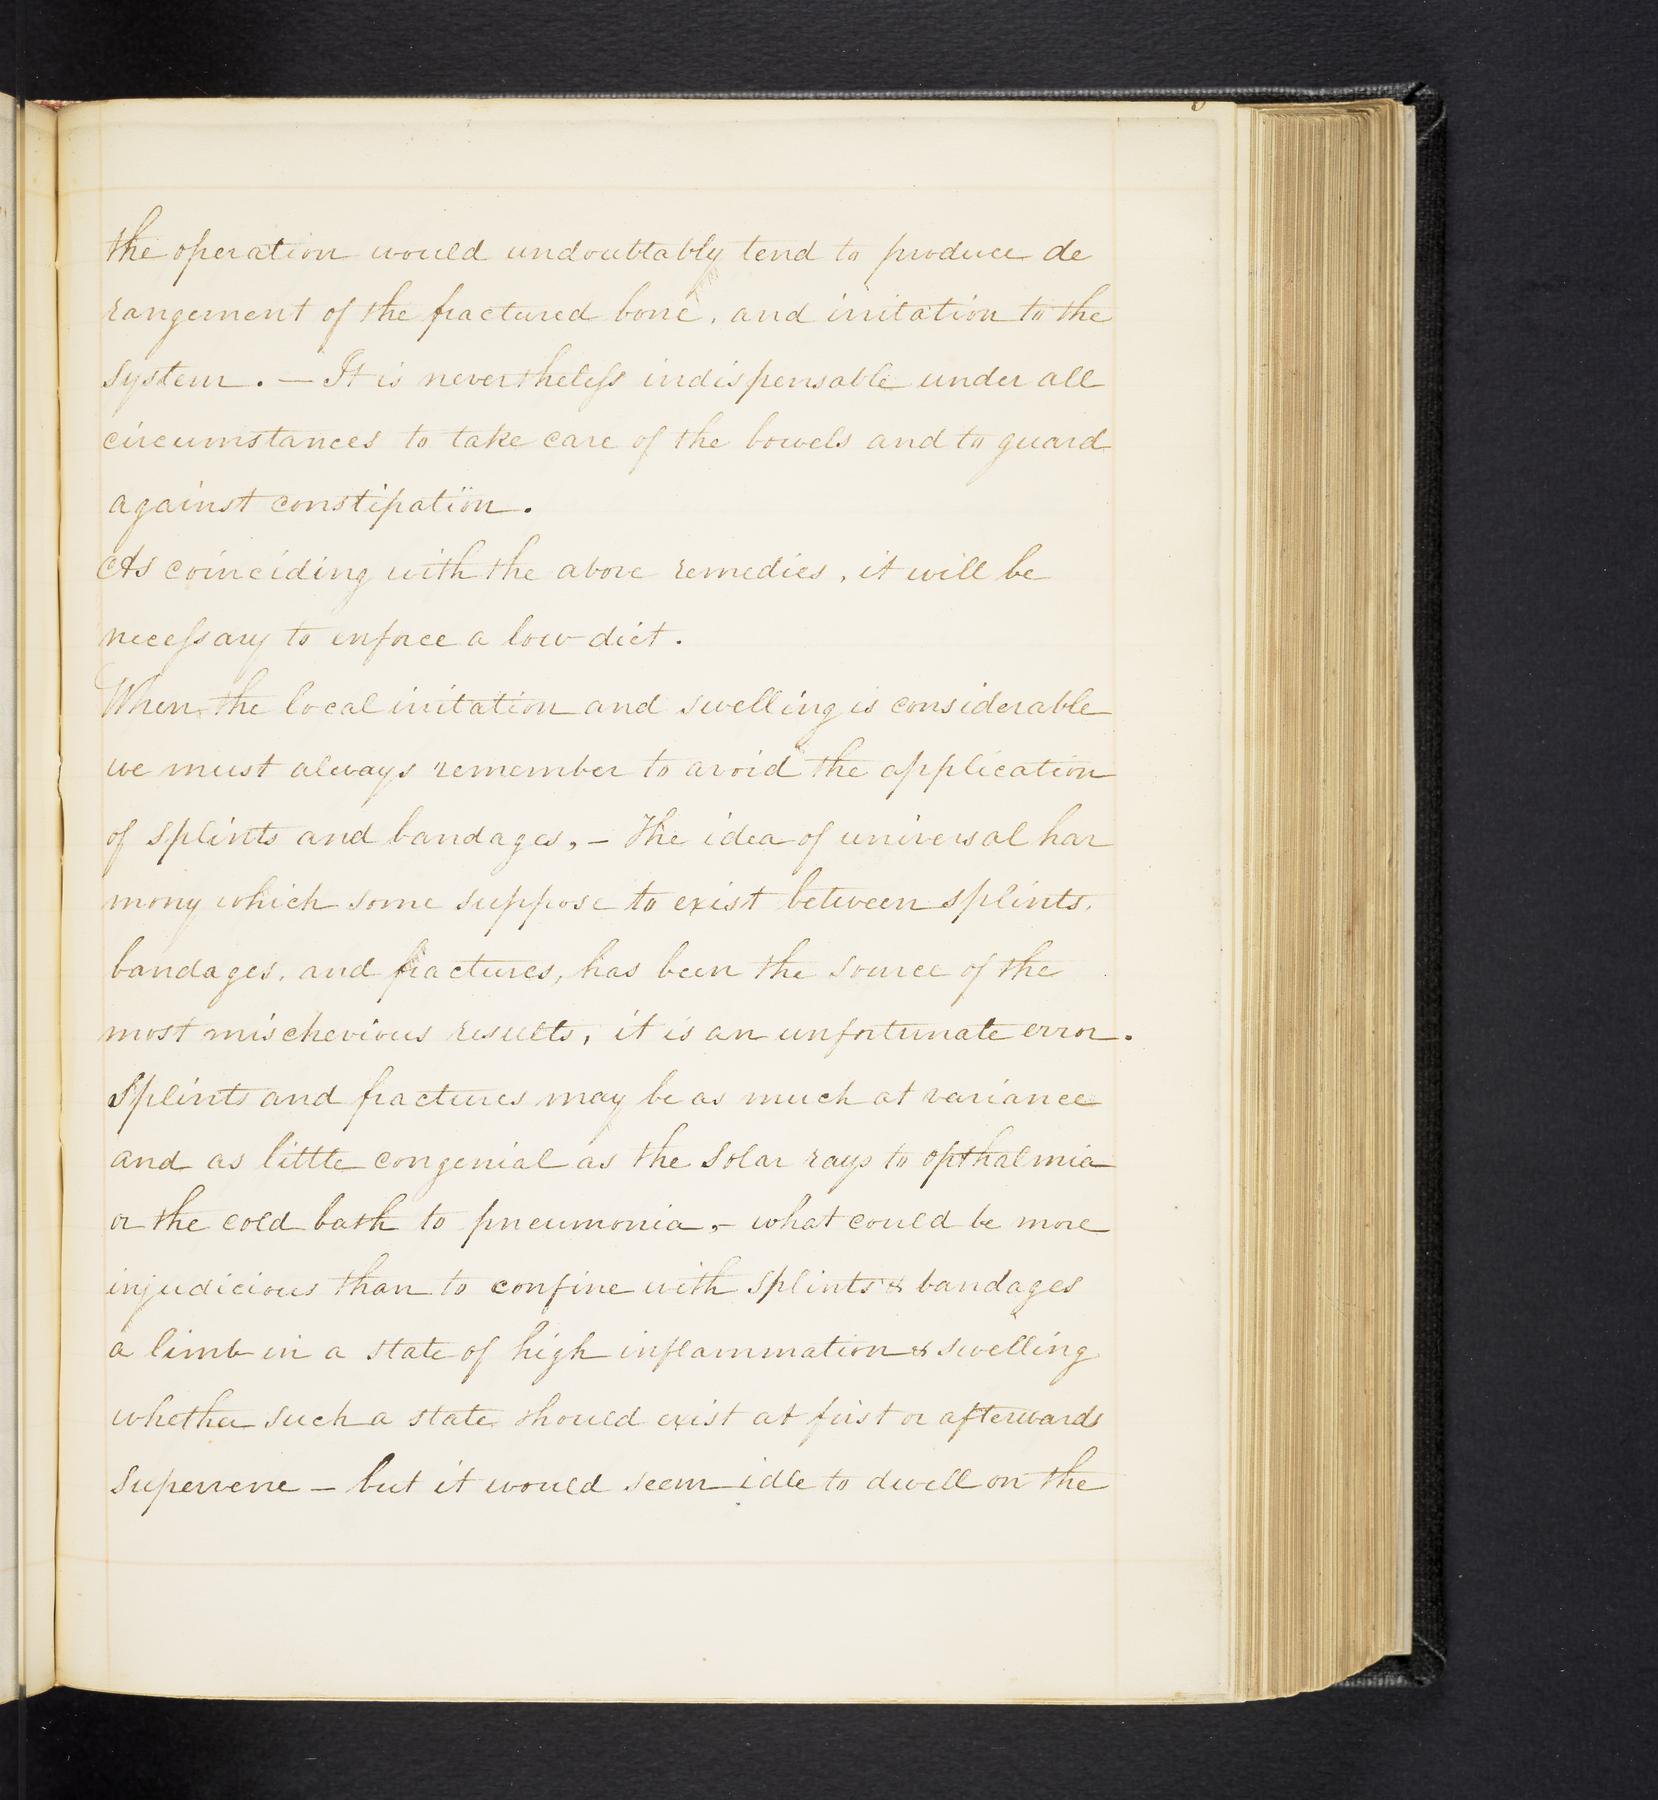 the operation would undoubtably tend to produce de
rangement of the fractured bone, and irritation to the
system. — It is nevertheless indispensable under all
circumstances to take care of the bowels and to guard
against constipation.
As coinciding with the above remedies, it will be
necessary to inforce a low diet.
When the local irritation and swelling is considerable
we must always remember to avoid the application
of splints and bandages, — The idea of universal har
mony which some suppose to exist between splints,
bandages, and fractures, has been the source of the
most mischevious results, it is an unfortunate error.
Splints and fractures may be as much at variance
and as little congenial as the solar rays to opthalmia
or the cold bath to pneumonia, – what could be more
injudicious than to confine with splints & bandages
a limb in a state of high inflammation & swelling
whether such a state should exist at first or afterwards
supervene – but it would seem idle to dwell on the